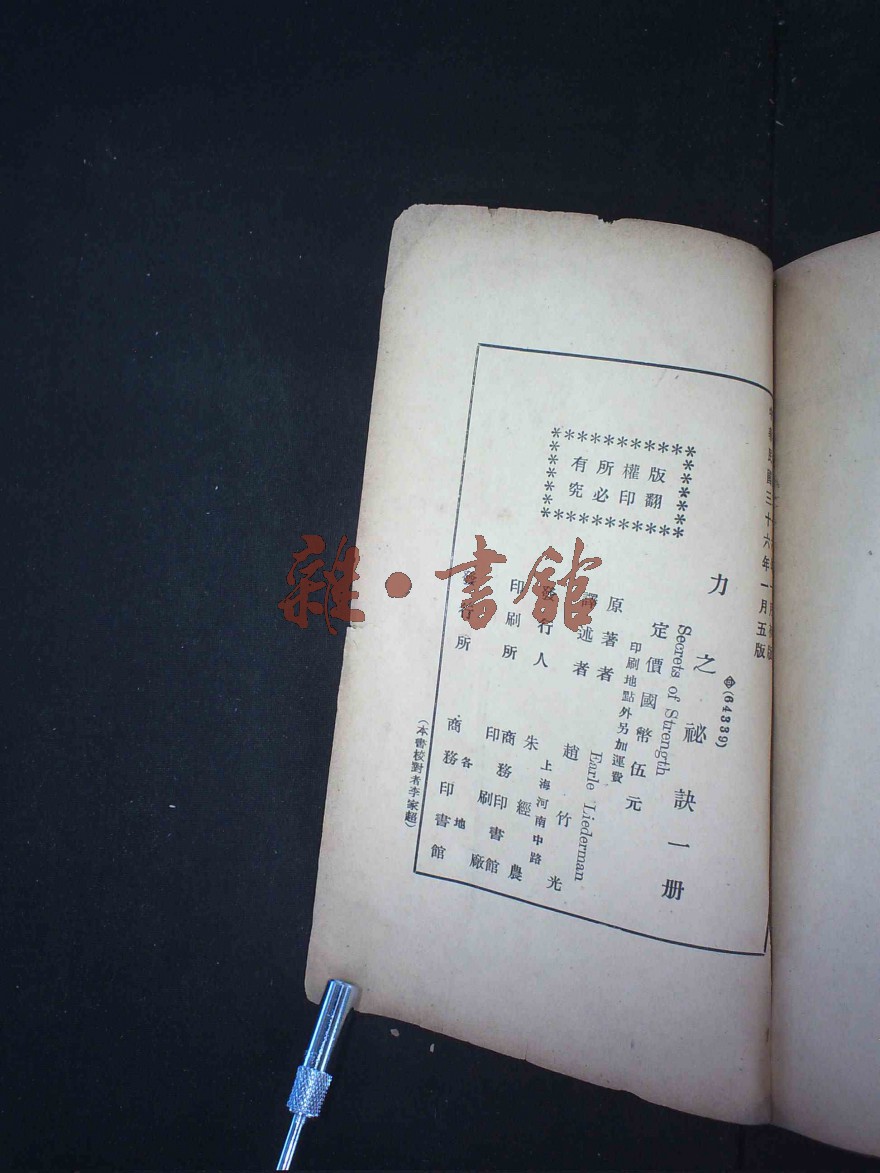 中華民國三十六年一月五版
(64339)
力之祕訣一册
Secrets of Strength
定價國幣伍元
印刷地點外另加運費
原著者 Earle Liederman
譯述者 趙竹光
發行人 朱經農
上海河南中路
印刷所 商務印書館
印刷廠
發行所 商務印書館
各地
版權所有
翻印必究
(本書校對者李家超)
雜·書館